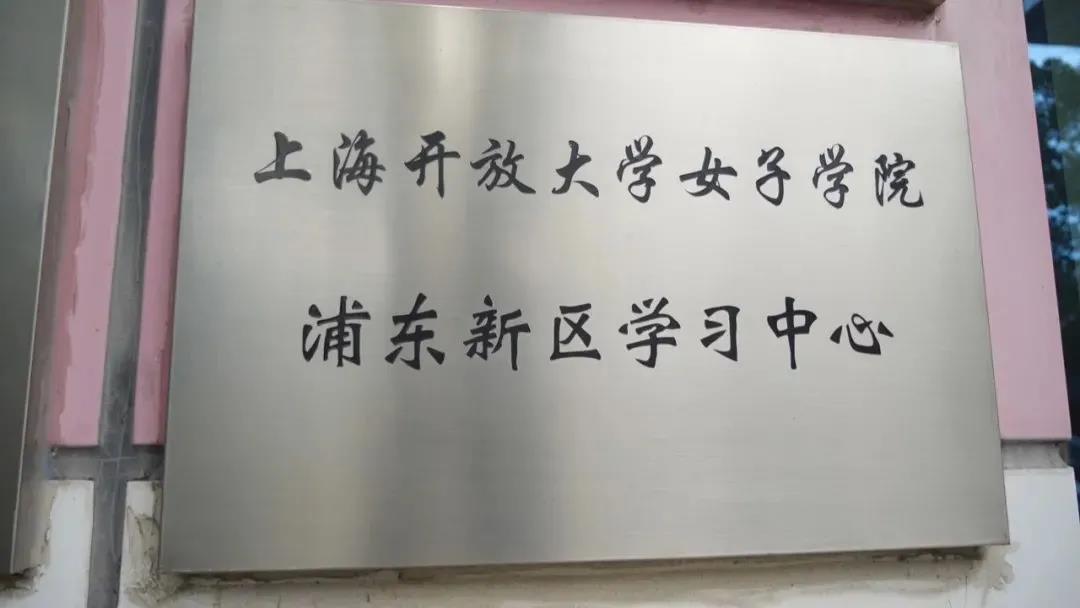 上海开放大学女子学院
浦东新区学习中心